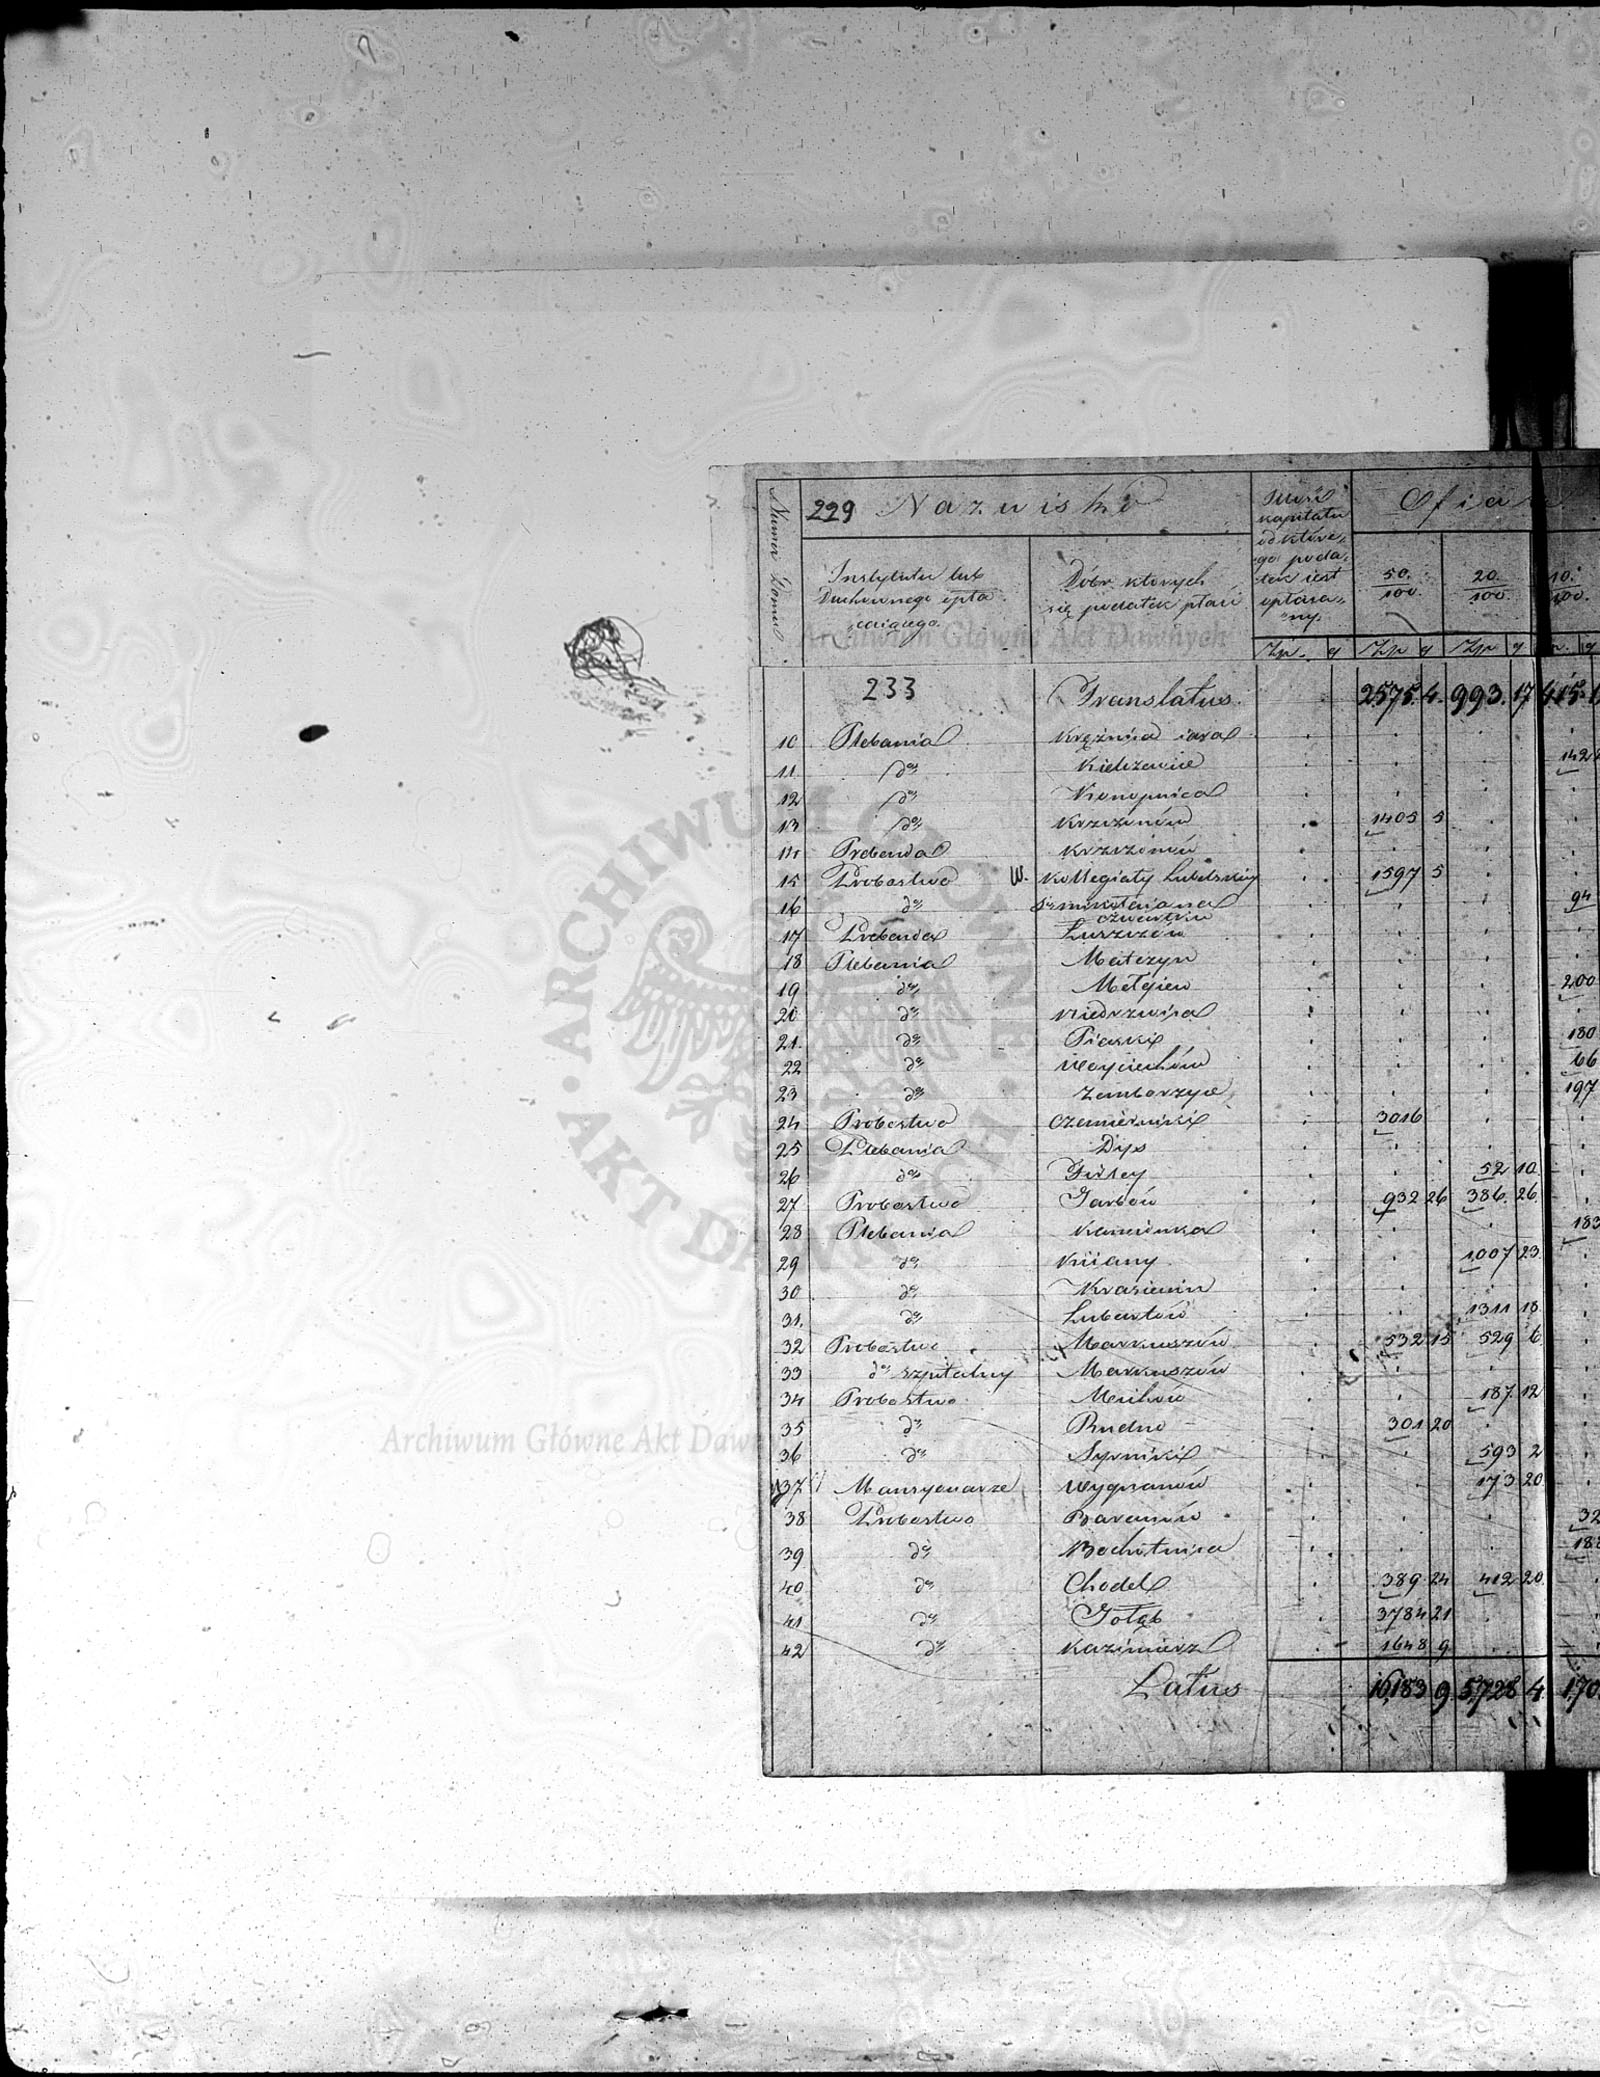 Numer Domu
229 Nazwisko
Instytutu lub
Duchownego opła
cającego
Dóbr których
się podatek płaci
Ilość
kapitału
od które,,
go poda,,
tek iest
opłaca,,
ny.
Ofiara
50. 20. 10.
100. 100. 100.
Złp. g Złp g Złp g
233 Translatus. 2575. 4. 993. 17 415.
10 Plebania Krężnica iara
11. do Kiełczewice 142
12 do Konopnica
13 do Krzczonów 1405 5
14 Prebenda Krzczonów
15 Probostwo W. Kollegiaty Lubelskiey 1597 5
16 do Sgo Mikołaia na 94
czwartku
17 Prebenda Łuszczów
18 Plebania Matczyn
19 do Mełgiew 200
20 do Niedrzwica
21. do Piaski 180
22 do Woyciechów 66
23 do Zemborzyce 197
24 Probostwo Czemierniki 3016
25 Plebania Dys
26 do Firley 52 10
27 Probostwo Garbów 932 26 386. 26.
28 Plebania Kamionka 183
29 do Kiiany 1007 23.
30 do Krasienin
31. do Lubartów 1311 18
32 Probostwo Markuszów 532 15 529 6.
33 do szpitalny Markuszów
34 Probostwo Michów 187 12
35 do Rudno 301 20
36 do Syrniki 593 2
37 Mansyonarze Wygnanów 173 20.
38 Probostwo Baranów 32
39 do Bochotnica 188
40 do Chodel 389 24 412 20.
41 do Gołąb 3784 21
42 do Kazimierz 1648 9
Latus 16,183 9 5,728 4. 1,70
Archiwum Główne Akt Dawnych
ARCHIWUM GŁÓWNE AKT DAWNYCH
Archiwum Główne Akt Dawn